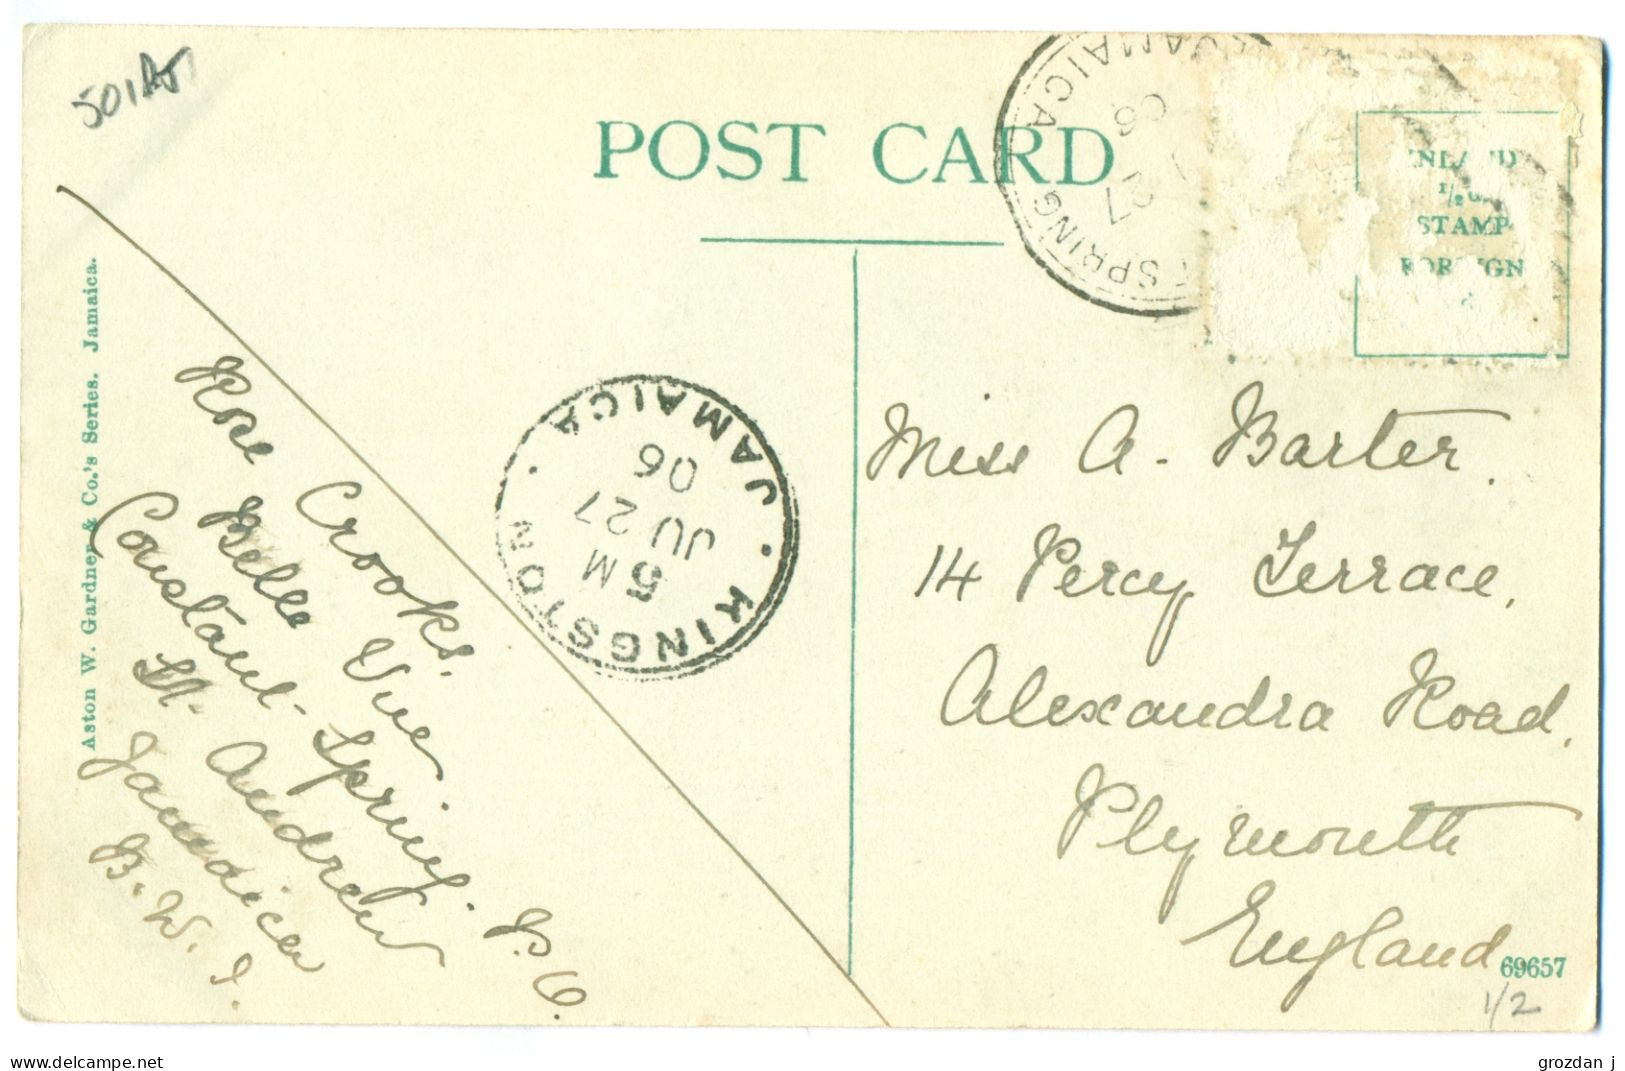 501
POST CARD
SPRING JAMAICA
27
06
INLAND
1/2
STAMP
FOREIGN
Aston W. Gardner & Co.'s Series. Jamaica.
Rose Crooks.
Belle Vue
Constant Spring. P.O.
St. Andrew
Jamaica
B.W.I.
KINGSTON · JAMAICA ·
5 M
JU 27
06
Miss A. Barter.
14 Percy Terrace,
Alexandra Road,
Plymouth
England
69657
1/2
www.delcampe.net
grozdan j